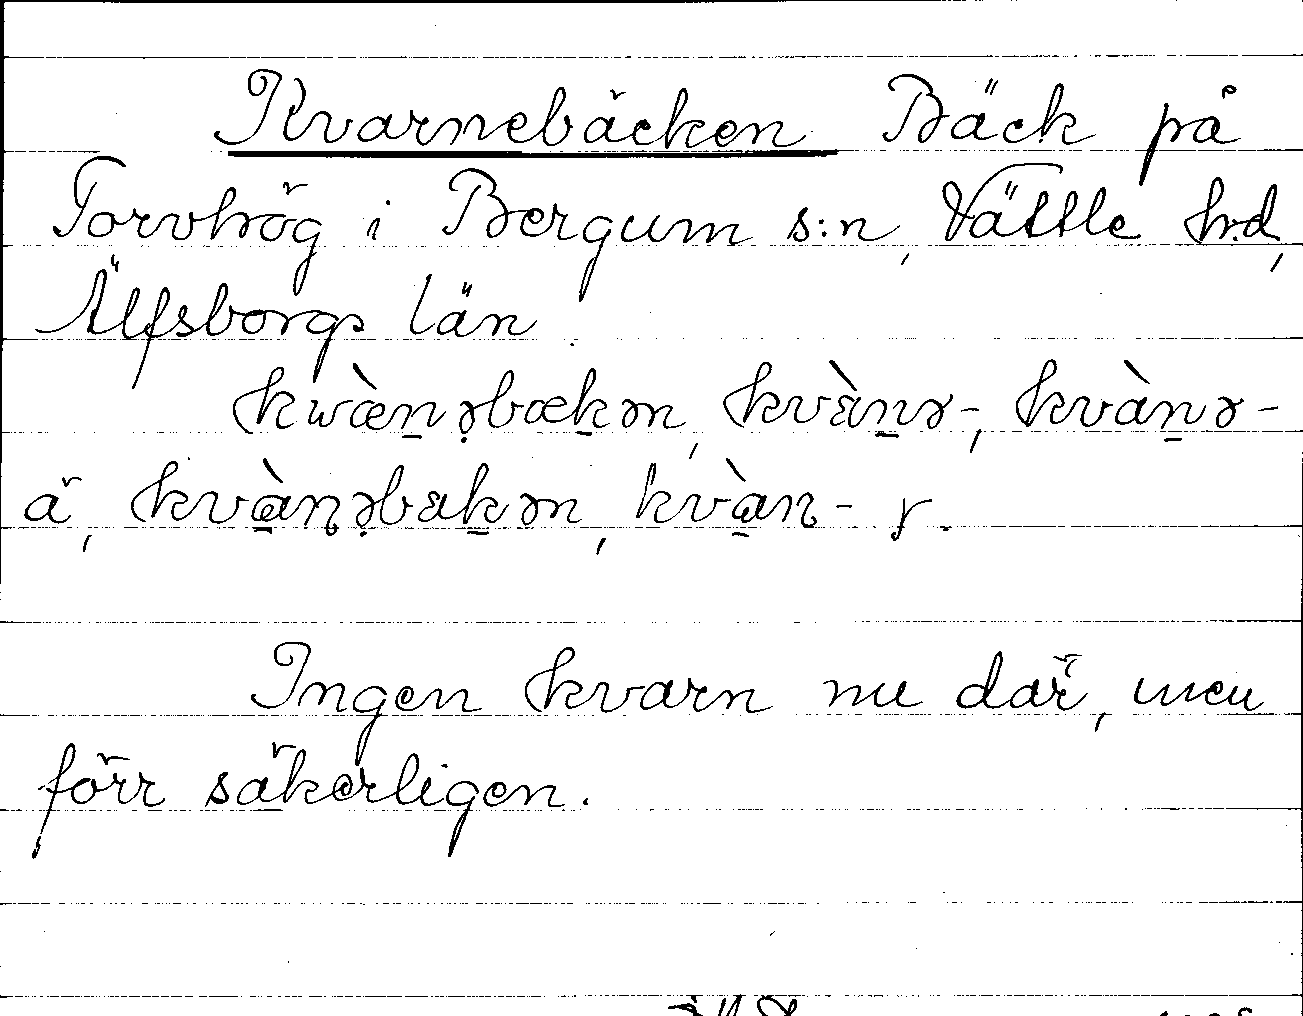 Kvarnebäcken Bäck på
Torvhög i Bergum s:n, Vättle hd,
Älfsborgs län
kwæ̀n̠ə̣bæk̠ən, kvɛ̀n̠ə-, kvàn̠ə-
ä, kvàṉə̣bɛk̠ən, kvàn- r.
Ingen kvarn nu där, men
förr säkerligen.